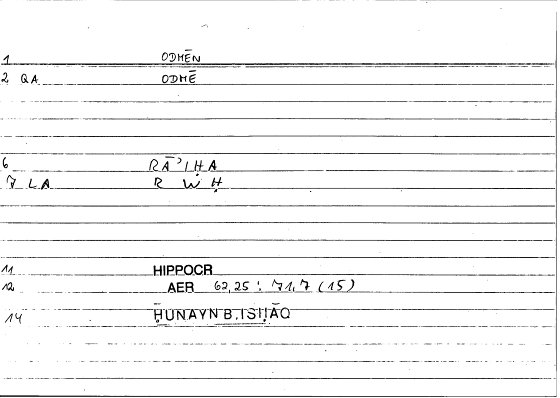 1 ODMĒN
2 QA ODMĒ
6 RĀʾIḤA
7 LA R W Ḥ
11 HIPPOCR
12 AER 62,25 : 71,7 (15)
14 ḤUNAYN B. ISḤĀQ